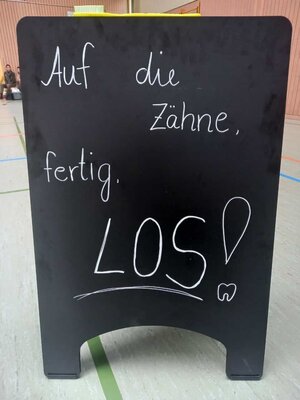 Auf die
Zähne,
fertig,
LOS!